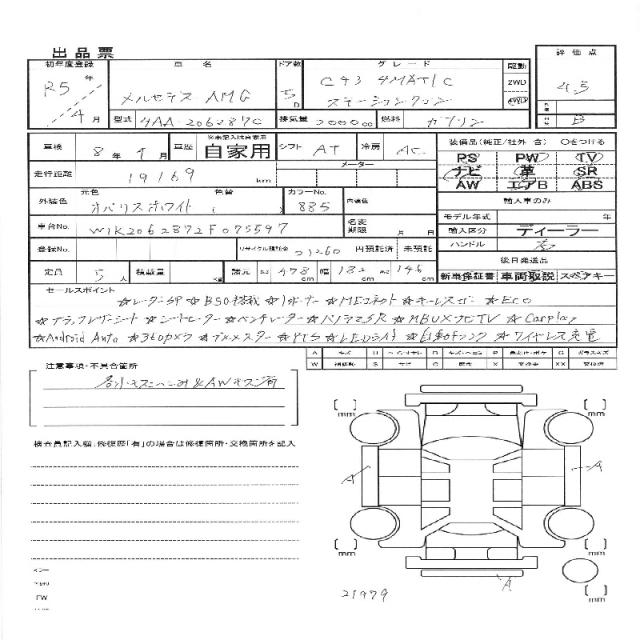 出品票
初年度登録 車名 ドア数 グレード 駆動 評価点
R5年 メルセデス AMG 5D C43 4MATIC 2WD 4.5
4月 ステーションワゴン 4WD
型式 4AA-206287C 排気量 2000cc 燃料 ガソリン B
車検 8年4月 車歴 自家用 シフト AT 冷房 AC 装備品(純正/社外 含) 〇をつける
PS PW TV
走行距離 19169 km メーター ナビ 革 SR
AW エアB ABS
元色 色替 カラーNo.
外装色 オパリスホワイト ( ) 885 内装色 輸入車のみ
モデル年式 年
車台No. W1K2062872F075597 名変期限 月 日 輸入区分 ディーラー
登録No. リサイクル預託金 21260 円預託済 未預託 ハンドル 右
後日発送品
定員 5人 積載量 kg 諸元 長さ 478cm 幅 182cm 高さ 146cm 新車保証書 車両取説 スペアキー
セールスポイント
☆レーダーSP ☆BSG搭載 ☆1オーナー ☆MEコネクト ☆キーレスゴー ☆ECO
☆ブラックレザーシート ☆シートヒーター ☆ベンチレーター ☆パノラマSR ☆MBUXナビTV ☆Carplay
☆Android Auto ☆360カメラ ☆ブルメスター ☆PTS ☆LEDライト ☆自動トランク ☆ワイヤレス充電
注意事項・不具合箇所
各小キズハンコミ&AWキズ有
検査員記入欄、修復歴「有」の場合は修復箇所・交換箇所を記入
mm mm
A A
mm mm
21979 A mm